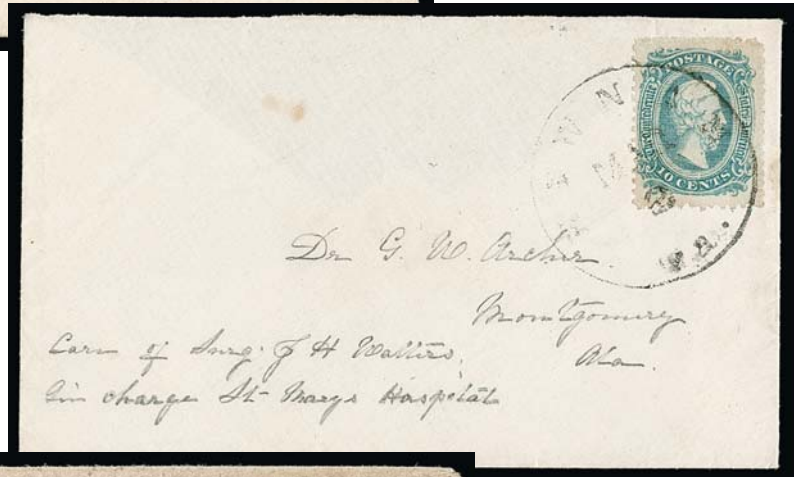 POSTAGE
Confederate States America
10 CENTS
Dr G. W. Archer
Montgomery
Ala.
Care of Surg. J H Walters,
in charge St Marys Hospital